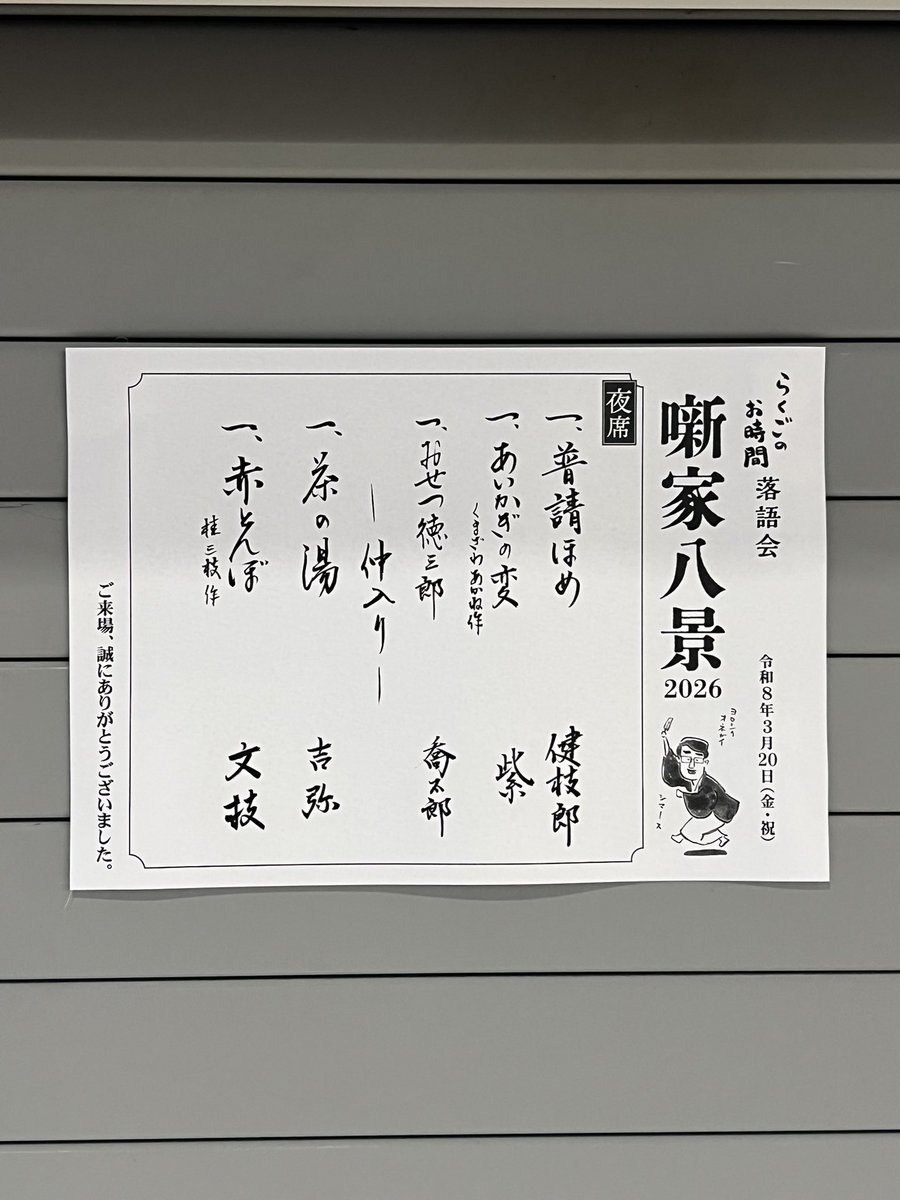 らくごの
お時間
落語会
令和8年3月20日(金・祝)
噺家八景
2026
ヨローシク
オネガイ
シマース
夜席
一、普請ほめ 健枝郎
一、あいかぎの変 紫
くまざわあかね作
一、おせつ徳三郎 喬太郎
―仲入り―
一、茶の湯 吉弥
一、赤とんぼ 文枝
桂三枝作
ご来場、誠にありがとうございました。